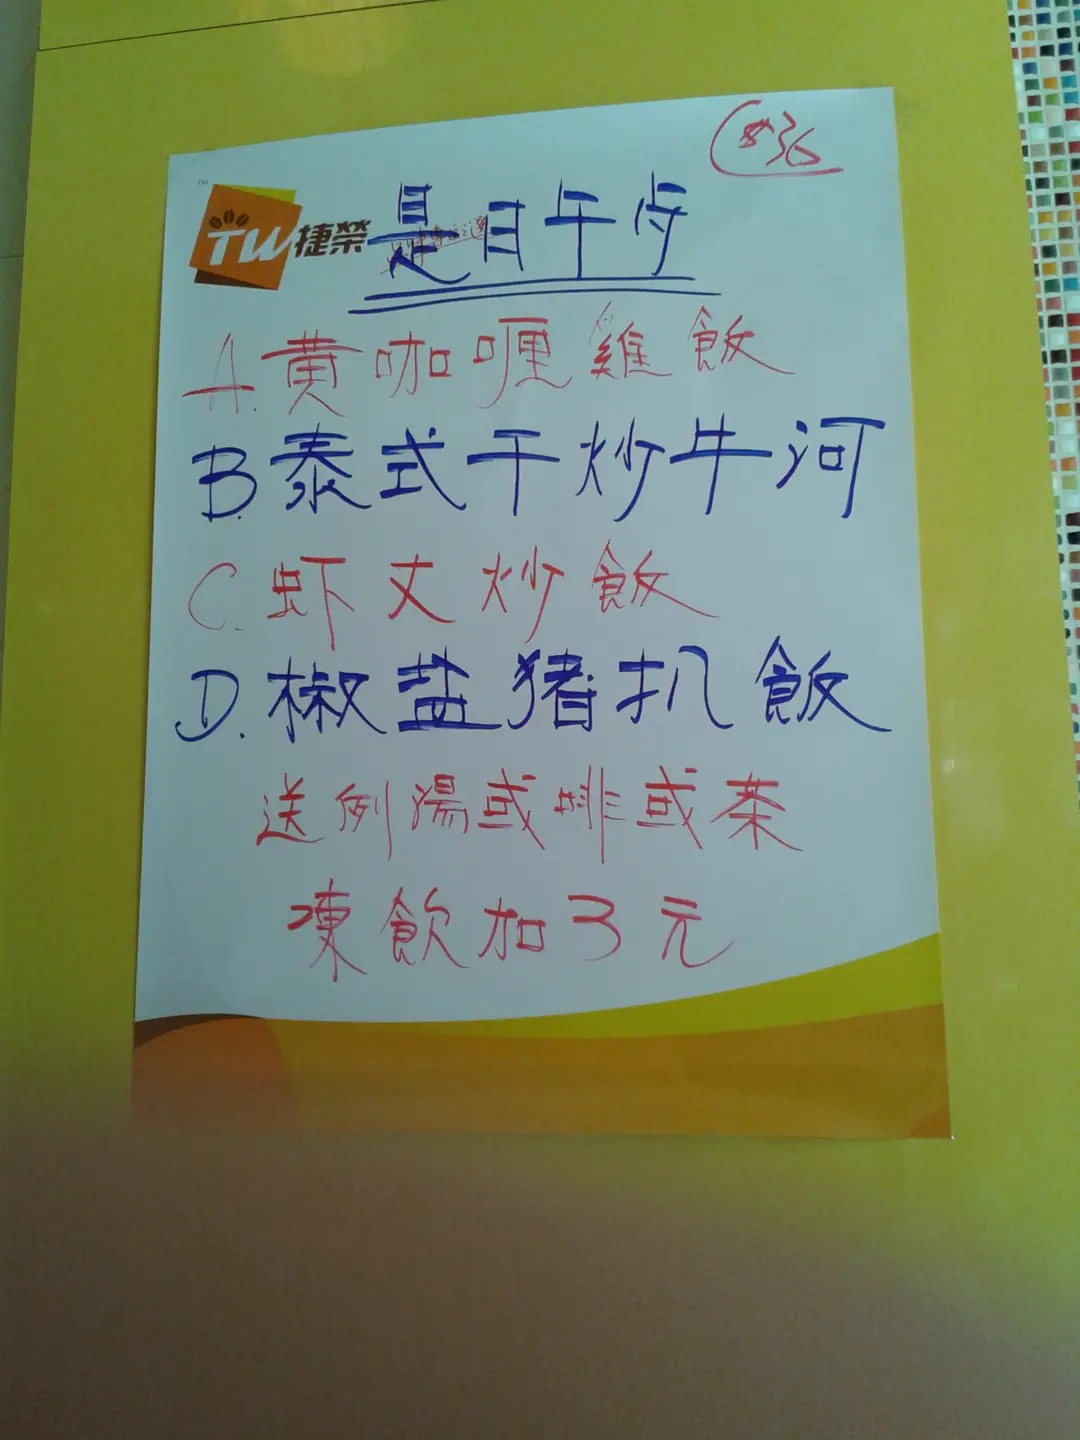 $36
TW 捷榮
是日午歺
A. 黄咖喱雞飯
B. 泰式干炒牛河
C. 虾丈炒飯
D. 椒盐猪扒飯
送例湯或啡或茶
凍飲加3元